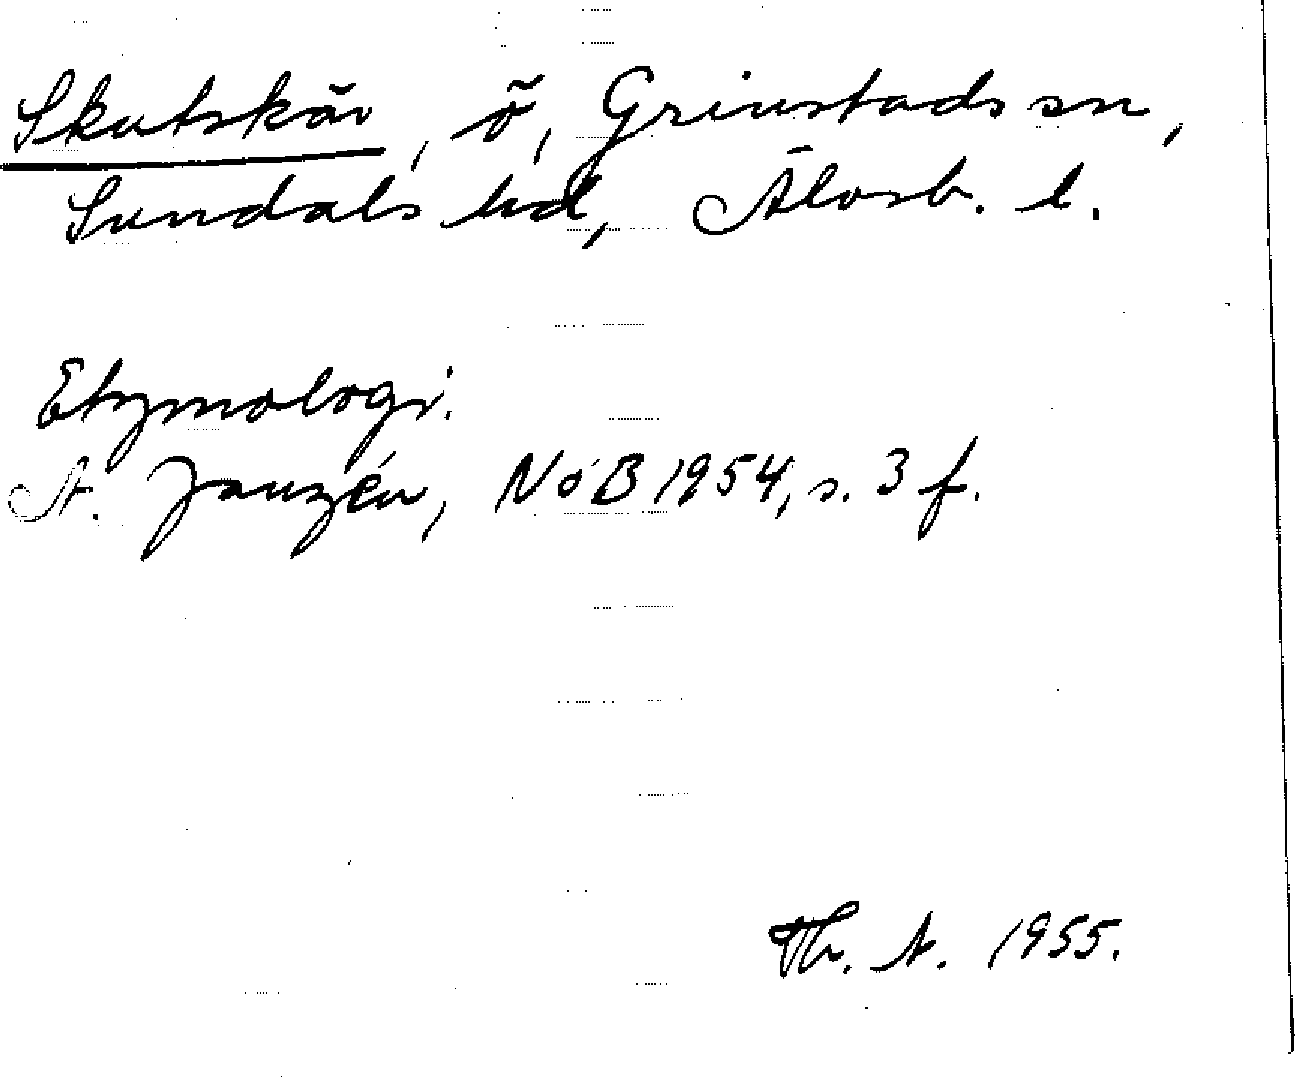 Skutskär, ö, Grinstads sn,
Sundals hd, Älvsb. l.
Etymologi.
A. Janzén, NoB 1954, s. 3 f.
Th. A. 1955.